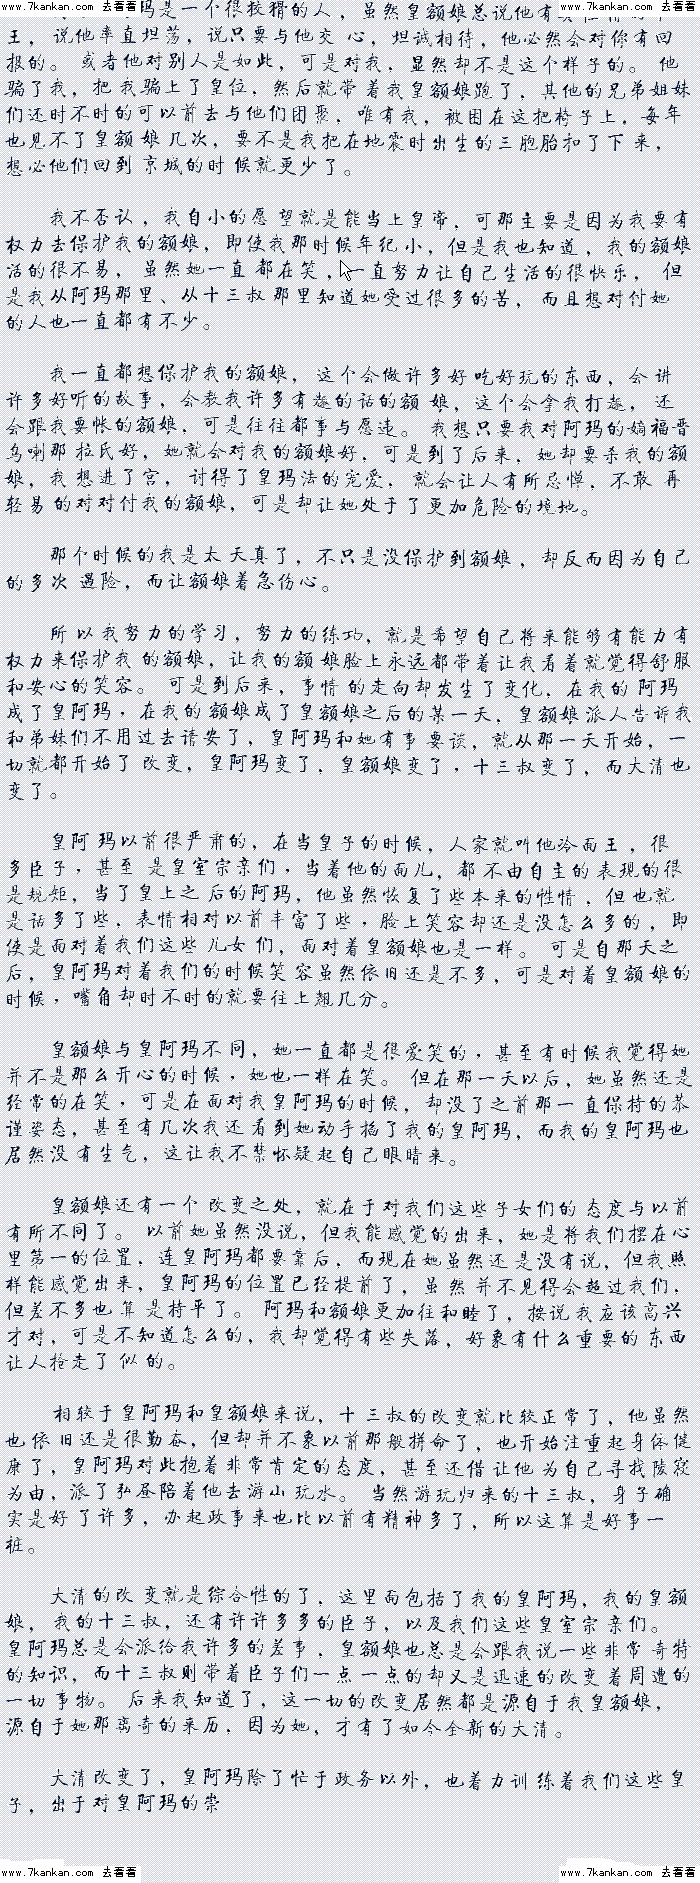 www.7kankan.com 去看看 www.7kankan.com 去看看
玛是一个很狡猾的人，虽然皇额娘总说他有
王，说他率直坦荡，说只要与他交 心，坦诚相待，他必然会对你有回
报的。 或者他对别人是如此，可是对我，显然却不是这个样子的。 他
骗了我，把 我骗上了皇位，然后就带 着我皇额娘跑了，其他的兄弟姐妹
们还时不时的可以前去与他们团聚，唯有我，被困在这把椅子上，每年
也见不了皇额 娘 几次，要不是我把在地震时出生的三胞胎扣了下 来，
想必他们回到 京城的时 候就更少了。
我不否认，我自小的愿 望就是能当上皇帝，可那主要是因为我要有
权力去保护我的额娘，即使我那时候年纪小，但是我也知道，我的额娘
活的很不易， 虽然她一直 都在笑，一直努力让自己生活的很快乐， 但
是我从阿玛那里、从十三叔 那里知道她受过很多的苦， 而且想对付她
的人也一直都有不少。
我一直都想保护我的额娘， 这个会做许多好 吃好玩的东西，会 讲
许多好听的故事，会教我许多有趣的话的额 娘，这个会拿我打趣，还
会跟我要怅的额娘，可是往往都事与愿违。 我想只要我对阿玛的嫡福晋
乌喇那 拉氏好，她就会对我的额娘好，可是到了后来，她却要杀我的额
娘，我 想进了宫， 讨得了皇玛法的宠爱， 就会让人有所忌惮，不敢 再
轻易 的对对付我的额娘，可是却让她处于了更加危险的境地。
那个时候的我是太 天真了，不只是没保护到额娘，却反而因为自己
的多次 遇险，而让额娘着急伤心。
所 以我努力的学习，努力的练功，就是希望自己将来能够有能力有
权力来保护我 的额娘，让我的额 娘脸上永远都带着让我看着就觉得舒服
和安心的笑容。 可是到后来，事情 的走向却发生了变化，在我的 阿玛
成了皇阿玛，在我的 额娘成了皇额娘之后的某一天， 皇额娘 派人告诉我
和弟妹们不用过去请安了，皇阿玛和她有事 要谈，就从那一天开始，一
切就都开始了 改变，皇阿玛变了，皇额娘变了，十三叔变了，而大清也
变了。
皇阿 玛以前很严肃的，在当皇子的时候，人家就叫他冷面王，很
多臣子，甚至 是皇室宗亲们，当着他的面儿，都 不由自主的 表现的很
是规矩，当了皇上之 后的阿玛，他虽然恢复了些本来的性情，但也就
是话多了些，表情相对以前丰富了些，脸上笑容却还是没怎么多的，即
使是面对着我们这些 儿女 们，面对着皇额娘也是一样。 可是自那天之
后，皇阿玛对着我们的时候笑 容虽然依旧还是不多，可是对着皇额娘的
时候，嘴角却时不时的就要往上翘几分。
皇额娘与皇阿玛不 同，她一直都是很爱笑的，甚至有时候我觉得她
并不是那么开心的时候，她也一样在笑。 但在那一天以后，她虽然还是
经常的在笑，可是在面对我皇阿玛的时候，却没了之前那一 直保持的恭
谨姿态，甚至有几次我还看到她动手掐了我的皇阿玛，而我的皇阿玛也
居然没有生气，这让我不禁怀疑起自己眼睛来。
皇额娘还有一个 改变之处，就在于对我们这些子女们的 态度与以前
有所不同了。 以前她虽然没说，但我能感觉的出来，她是将我们摆在心
里第一的位置，连皇阿玛都要靠后，而现在她虽然还 是没有说，但我照
样能感觉出来，皇阿玛的位置已经提前了，虽 然 并不见得会超过我们，
但差不多也 算 是持平了。 阿玛和额娘更加往和睦了，按说 我 应该高兴
才对，可是不知道怎么的，我却觉得有些失落，好象有什么重要的 东西
让人抢走了 似 的。
相较于皇阿玛和皇额娘来说，十 三叔的改变就比较正常了，他虽然
也 依 旧还是很勤奋，但却并不象以前那般拼命了，也开始注重起身体健
康了，皇阿玛对此抱着 非常肯定的态度，甚至还借让他 为自己寻找陵寝
为由，派了弘昼陪着他去游山 玩水。 当然游玩归来的十三叔，身子确
实是好 了许多，办起政事来也比以前有精神多了，所以这算是好事一
桩。
大清的改 变就是综合性的了，这里面包括了我的皇阿玛，我的皇额
娘，我的十三叔，还有许许多多的臣子，以及我们这些皇室宗亲们。
皇阿玛总是会派给我许多的差事，皇额娘也总是会跟我说一些非常 奇特
的知识，而十三叔则带着臣子们一点一点的却又是迅速的改变着周遭的
一切 事物。 后来我知道了，这一切的改变居然都是源自于我皇额娘，
源自于她那离奇的来历，因为她，才有了如今全新的大清。
大清改变了，皇阿玛除了忙于政务以外，也着力训 练着我们这些皇
子，出于对皇阿玛的崇
www.7kankan.com 去看看 www.7kankan.com 去看看